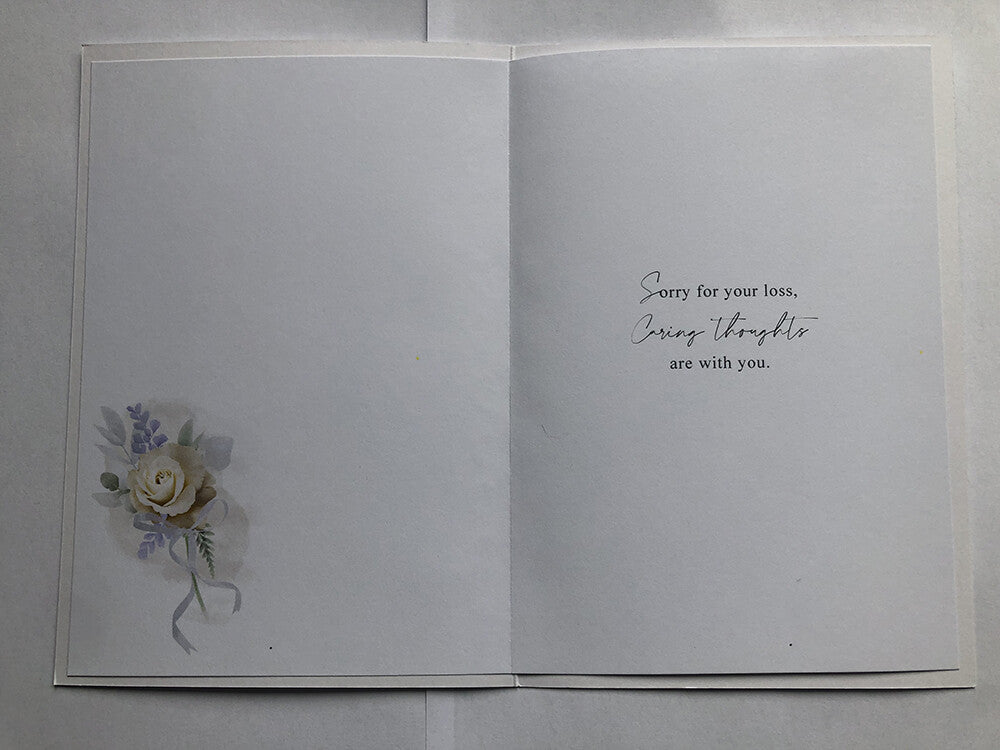 Sorry for your loss,
Caring thoughts
are with you.